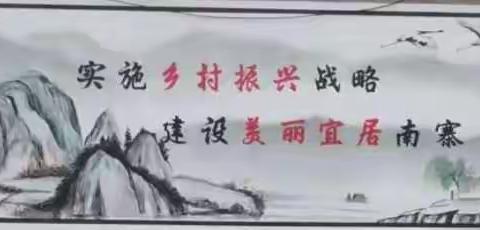 实施乡村振兴战略
建设美丽宜居南寨